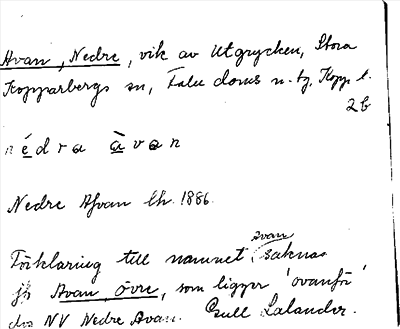 Avan, Nedre, vik av Utgrycken, Stora
Kopparbergs sn, Falu doms n. tg, Kopp l.
2 b
n é d r a à v a n
Nedre Afvan Ek. 1886.
Avan
Förklaring till namnet saknas
jfr Avan, övre, som ligger 'ovanför'
dvs NV Nedre Avan. Gull Lalander.